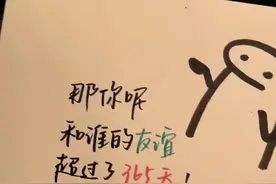 那你呢
和谁的友谊
超过了365天!